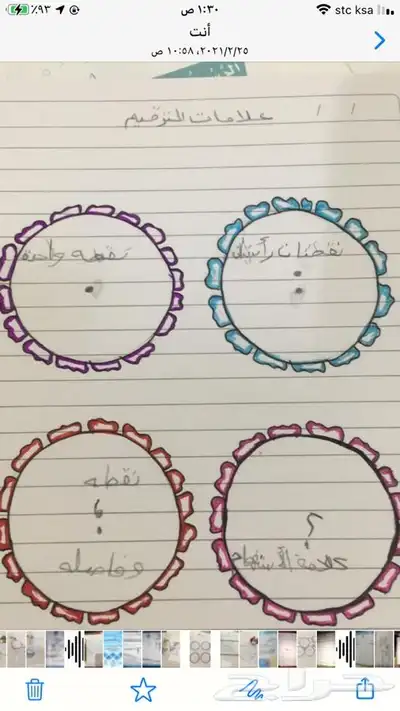 stc ksa
١:٣٠ ص
٪٩٣
أنت
٢٠٢١/٢/٢٥ ١٠:٥٨ ص
علامات الترقيم
نقطتان رأسيتان
:
نقطه واحدة
.
؟
علامة الأستفهام
نقطه
؛
وفاصله
حراج